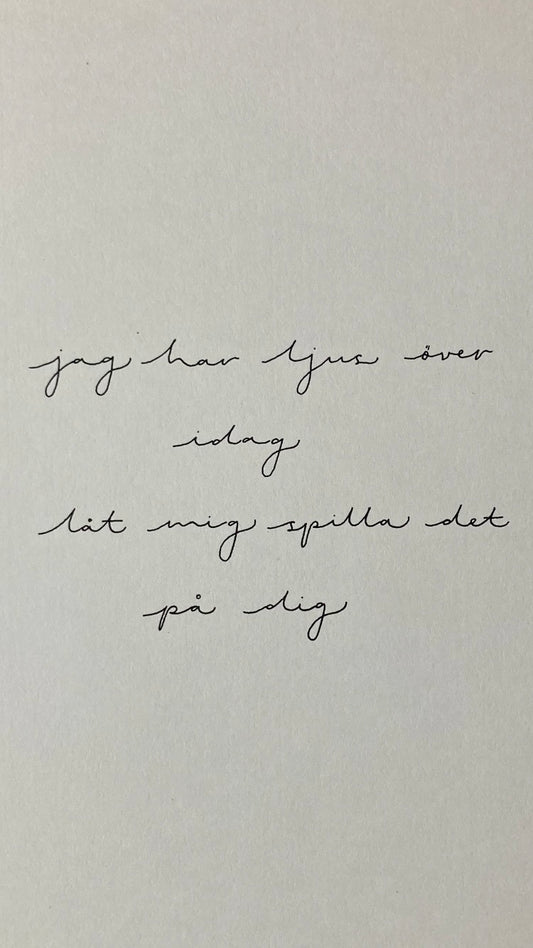 jag har ljus över
idag
låt mig spilla det
på dig